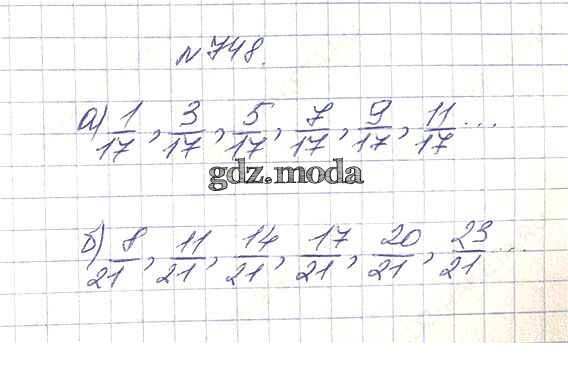 № 748.
а) 1/17, 3/17, 5/17, 7/17, 9/17, 11/17 ...
gdz.moda
б) 8/21, 11/21, 14/21, 17/21, 20/21, 23/21 ...